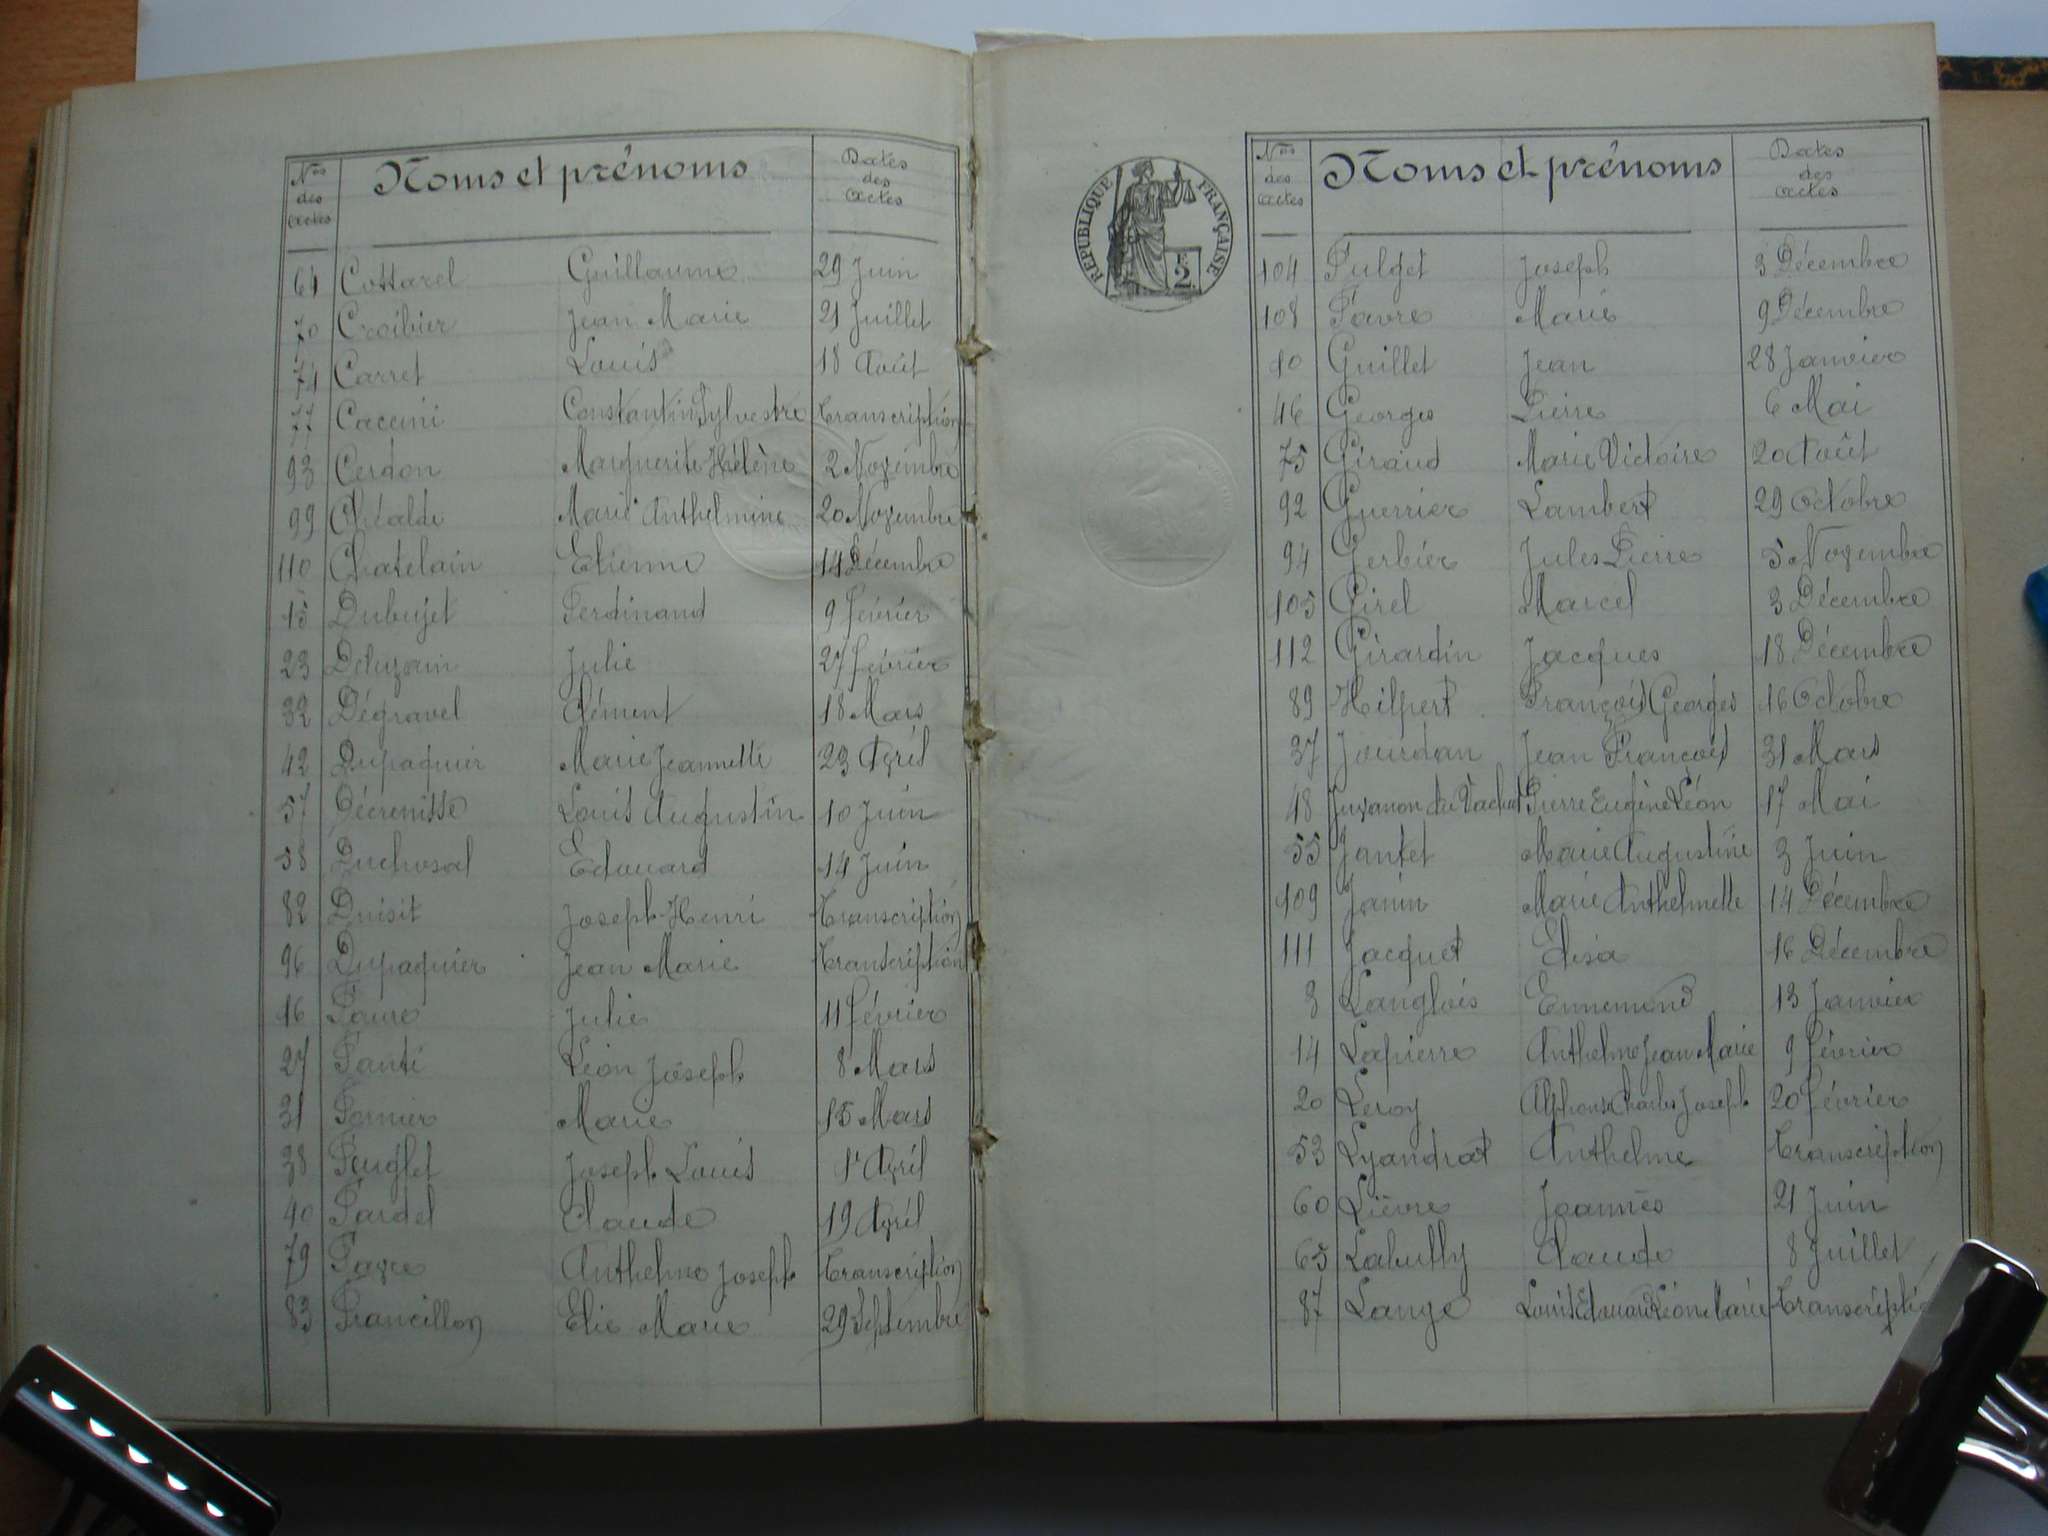 Nos des actes Noms et prénoms Dates des actes
61 Cottarel Guillaume 29 Juin
70 Croibier Jean Marie 21 Juillet
74 Carret Louis 18 Août
77 Caccini Constantin Sylvestre Transcription
93 Cerdon Marguerite Hélène 2 Novembre
99 Chéalde Marie Anthelmine 20 Novembre
110 Chatelain Etienne 14 Décembre
15 Dubujet Ferdinand 9 février
23 Julie 27 février
32 Dégravel Clément 18 Mars
42 Dupaquier Marie Jeannette 23 Avril
57 Décrenisse Louis Augustin 10 Juin
58 Duchosal Edouard 14 Juin
82 Duisit Joseph-Henri Transcription
96 Dupaquier Jean Marie Transcription
16 Faure Julie 11 février
27 Fanti Léon Joseph 8 Mars
31 Fornier Marie 15 Mars
38 Joseph Louis 1r Avril
40 Fardel Claude 19 Avril
79 Favre Anthelme Joseph Transcription
83 Francillon Elie Marie 29 Septembre
RÉPUBLIQUE FRANÇAISE
2
Nos des actes Noms et prénoms Dates des actes
104 Fulget Joseph 3 Décembre
108 Favre Marie 9 Décembre
10 Guillet Jean 28 Janvier
46 Georges Pierre 6 Mai
75 Giraud Marie Victoire 20 Août
92 Guerrier Lambert 29 Octobre
94 Gerbier Jules Pierre 5 Novembre
105 Girel Marcel 3 Décembre
112 Girardin Jacques 18 Décembre
89 Hilpert François Georges 16 Octobre
37 Jourdan Jean François 31 Mars
48 Juvanon du Vachat Pierre Eugène Léon 17 Mai
55 Jantet Marie Augustine 3 Juin
109 Janin Marie Anthelmette 14 Décembre
111 Jacquet Elisa 16 Décembre
3 Langlois Ennemond 13 Janvier
14 Lapierre Anthelme Jean Marie 9 février
20 Leroy Alphonse Charles Joseph 20 février
53 Lyandrat Anthelme Transcription
60 Lièvre Joannès 21 Juin
65 Labully Claude 8 Juillet
87 Lange Louis Edouard Léon Marie